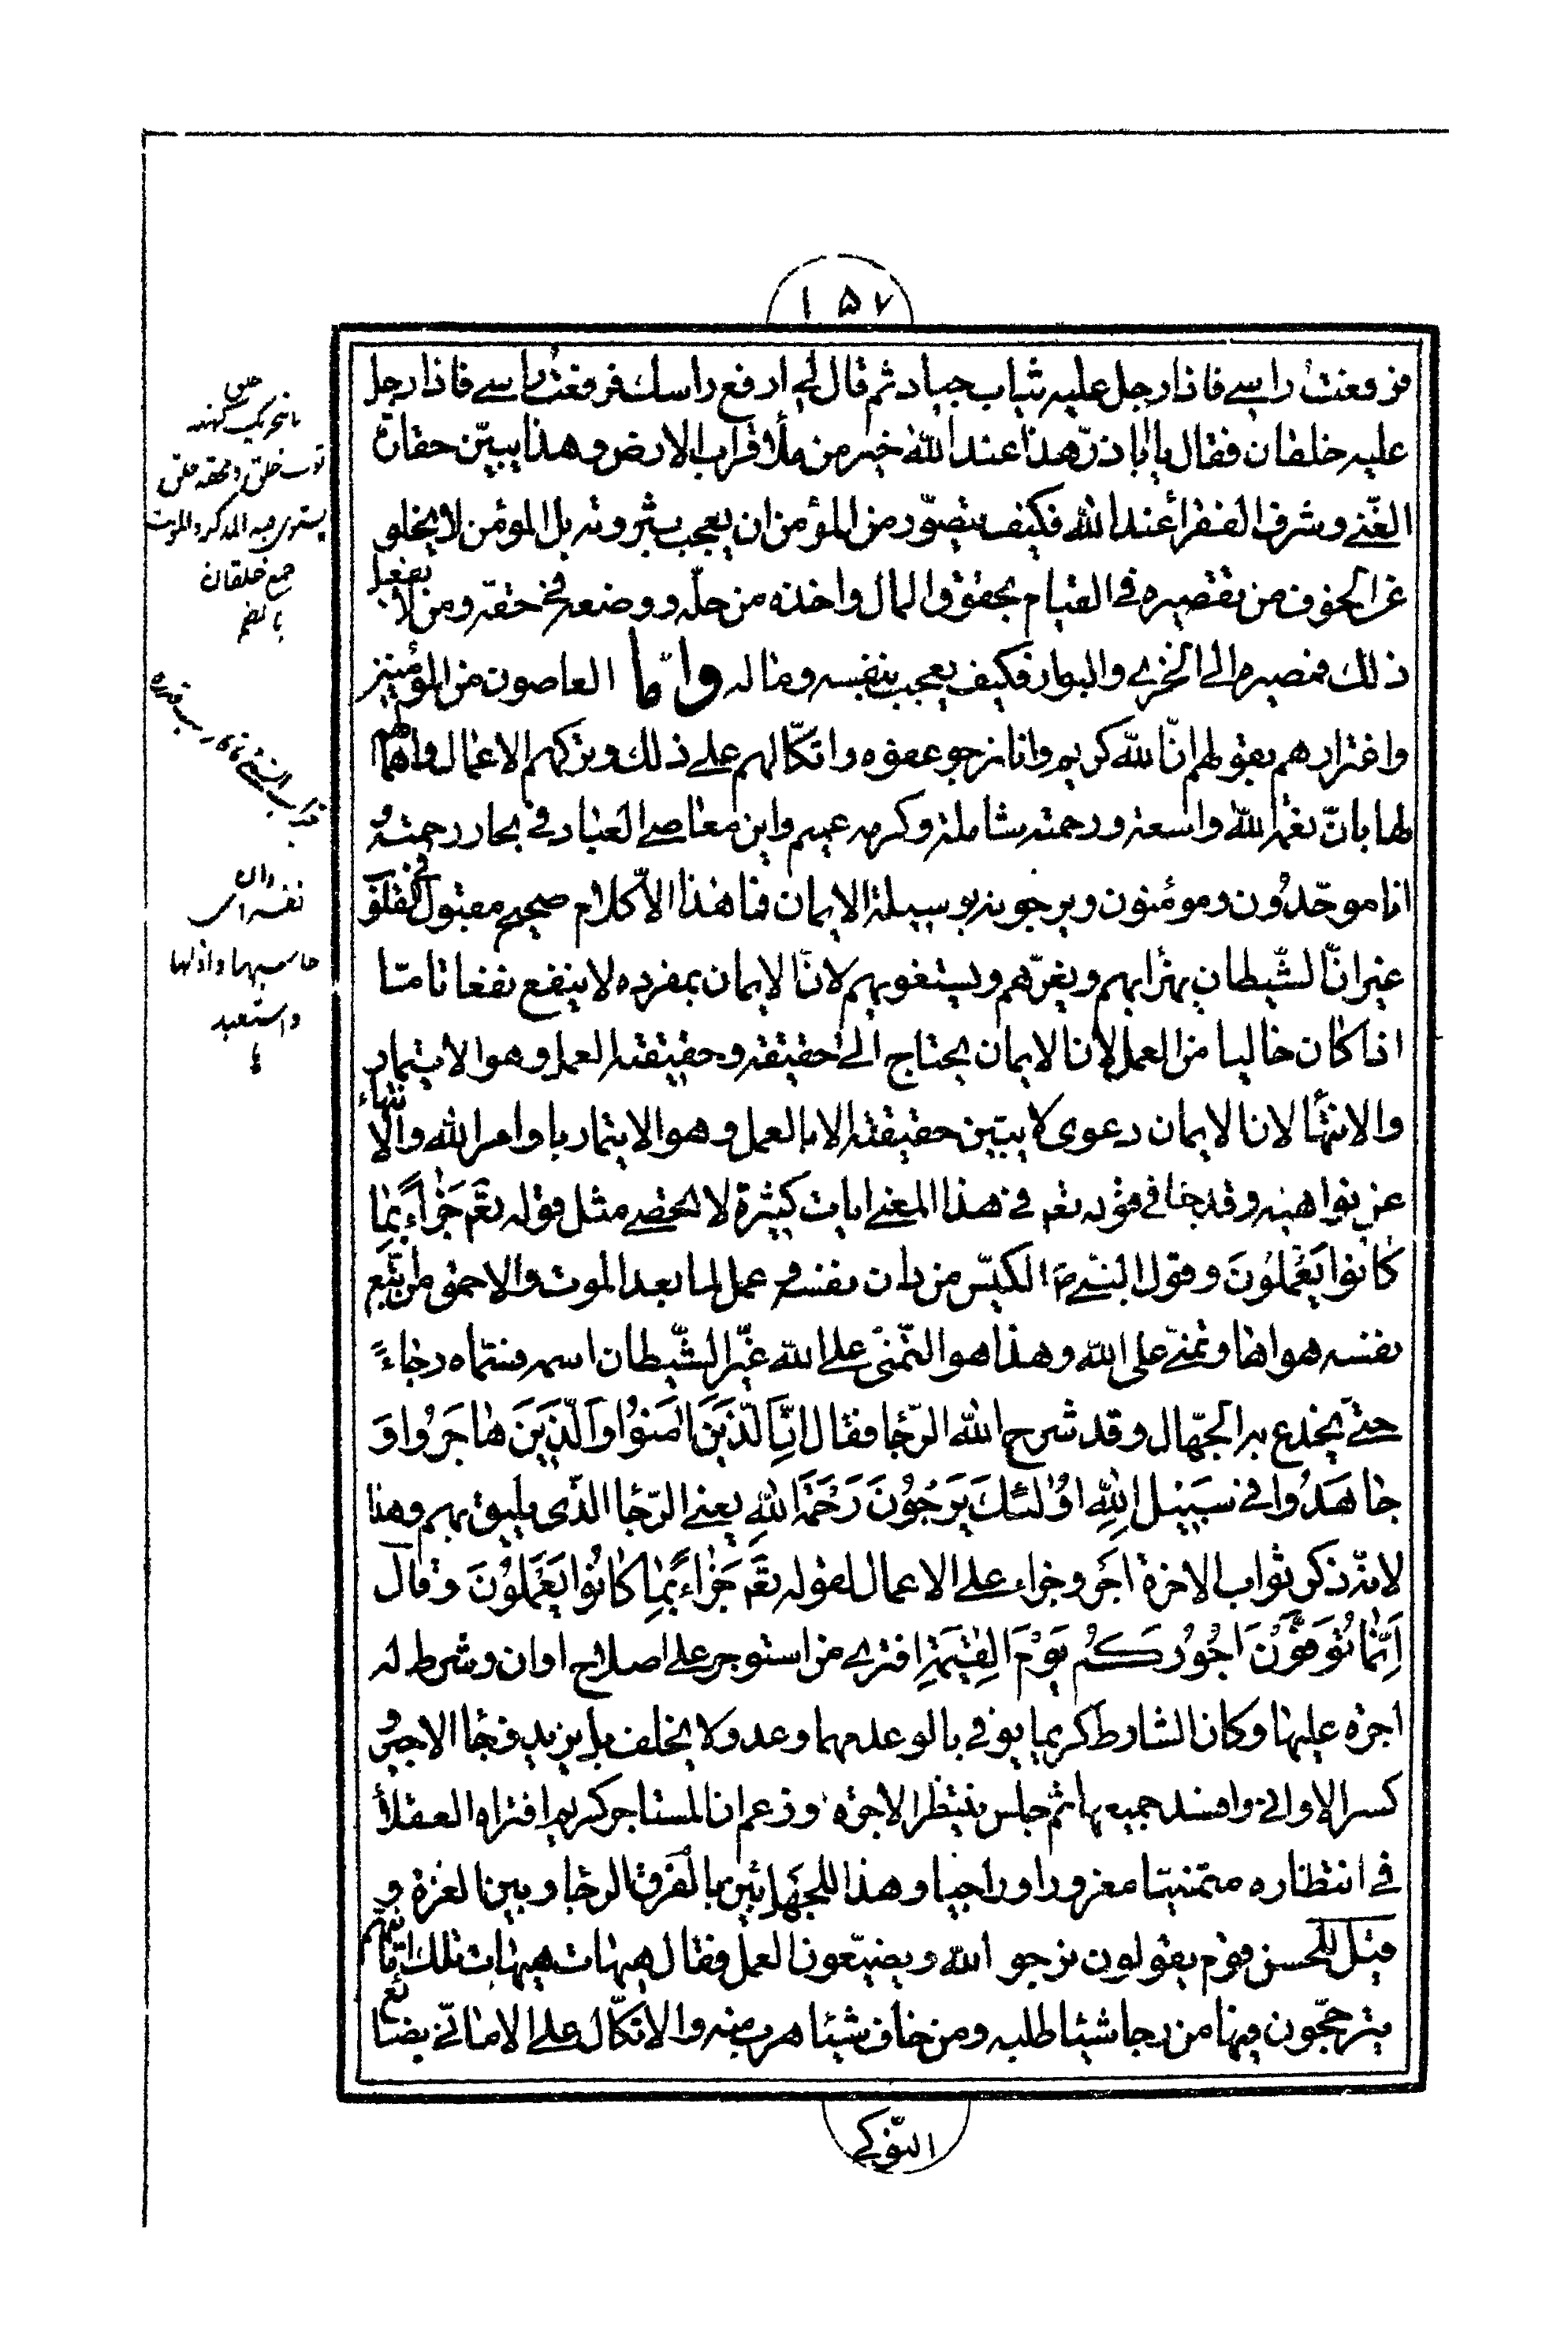 ١٥٧
فرفعت راسي فاذا رجل عليه ثياب جياد ثم قال لي ارفع راسك فرفعت راسي فاذا رجل
عليه خلقان فقال يا اباذرّ هذا عند الله خير من ملأ قراب الارض وهذا يبيّن حقارة
الغنى وشرف الفقرأ عند الله فكيف يتصوّر من المؤمن ان يعجب بثروته بل المؤمن لا يخلو
عن الخوف من تقصيره في القيام بحقوق المال واخذه من حلّه ووضعه في حقه ومن لا يفعل
ذلك فمصيره الى الخزي والبوار فكيف يعجب بنفسه وماله وامّا العاصون من المؤمنين
واغترارهم بقولهم انّ الله كريم وانا نرجو عفوه واتكالهم على ذلك وتركهم الاعمال واهمالهم
لها بانّ نعمة الله واسعة ورحمته شاملة وكرمه عميم واين معاصي العباد في بحار رحمته و
انا موحّدون ومؤمنون ونرجوه بوسيلة الايمان فما هذا الا كلام صحيح مقبول في القلوب
غير انّ الشيطان يهزأ بهم ويغرّهم ويستغويهم لانّ الايمان بمفرده لا ينفع نفعا تامّا
اذا كان خاليا من العمل لان الايمان يحتاج الى حقيقة وحقيقته العمل وهو الايتمار
والانتهأ لان الايمان دعوى لا يتبين حقيقته الا بالعمل وهو الايتمار باوامر الله والانتهاء
عن نواهيه وقد جا في قوله تعم في هذا المعنى ايات كثيرة لا تحصى مثل قوله تعم جَزاءً بِما
كانُوا يَعْمَلُونَ وقول النبي ص الكيّس من دان نفسه و عمل لما بعد الموت والاحمق من تتبع
نفسه هواها وتمنّى على الله وهذا هو التمنّي على الله غيّر الشّيطان اسمه فسمّاه رجاءً
حتى يخدع به الجهّال وقد شرح الله الرّجا فقال اِنَّ الَّذينَ امَنُوا وَالَّذينَ هاجَرُوا وَ
جاهَدُوا في سَبيلِ اللهِ اُولئكَ يَرْجُونَ رَحْمَةَ اللهِ يعني الرّجا الذي يليق بهم وهذا
لانه ذكر ثواب الاخرة اجر وجزاء على الاعمال لقوله تعم جَزاءً بِما كانُوا يَعْمَلُونَ وقال
اِنَّما تُوَفَّوْنَ اُجُورَكُمْ يَوْمَ الْقِيمَةِ افترى من استوجر على اصلاح اوان وشرط له
اجره عليها وكان الشارط كريما يوفي بالوعد مهما وعد ولا يخلف بل يزيد فجا الاجير و
كسر الاواني وافسد جميعها ثم جلس ينتظر الاجرة وزعم ان المستاجر كريم افتراه العقلأ
في انتظاره متمنيا مغرورا او راجيا وهذا للجهل بالفرق بين الرجا وبين الغرة و
قيل للحسن قوم يقولون نرجو الله ويضيّعون العمل فقال هيهات هيهات تلك امانيّهم
يترجّحون فيها من رجا شيئا طلبه ومن خاف شيئا هرب منه والاتكال على الاماني بضايع
النوكى
خلق
بالتحريك كهنه
ثوب خلق وملحفة خلق
يستوى فيه المذكر والمونث
جمع خلقان
بالضم
دان
نفسه اى
حاسبها واذلها
واستعبد
ها